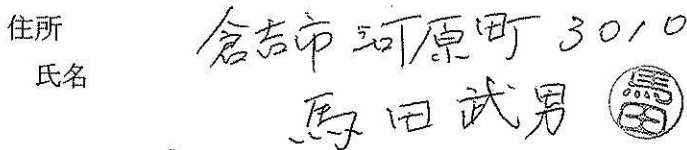 住所 倉吉市河原町3010
氏名 馬田武男 馬田